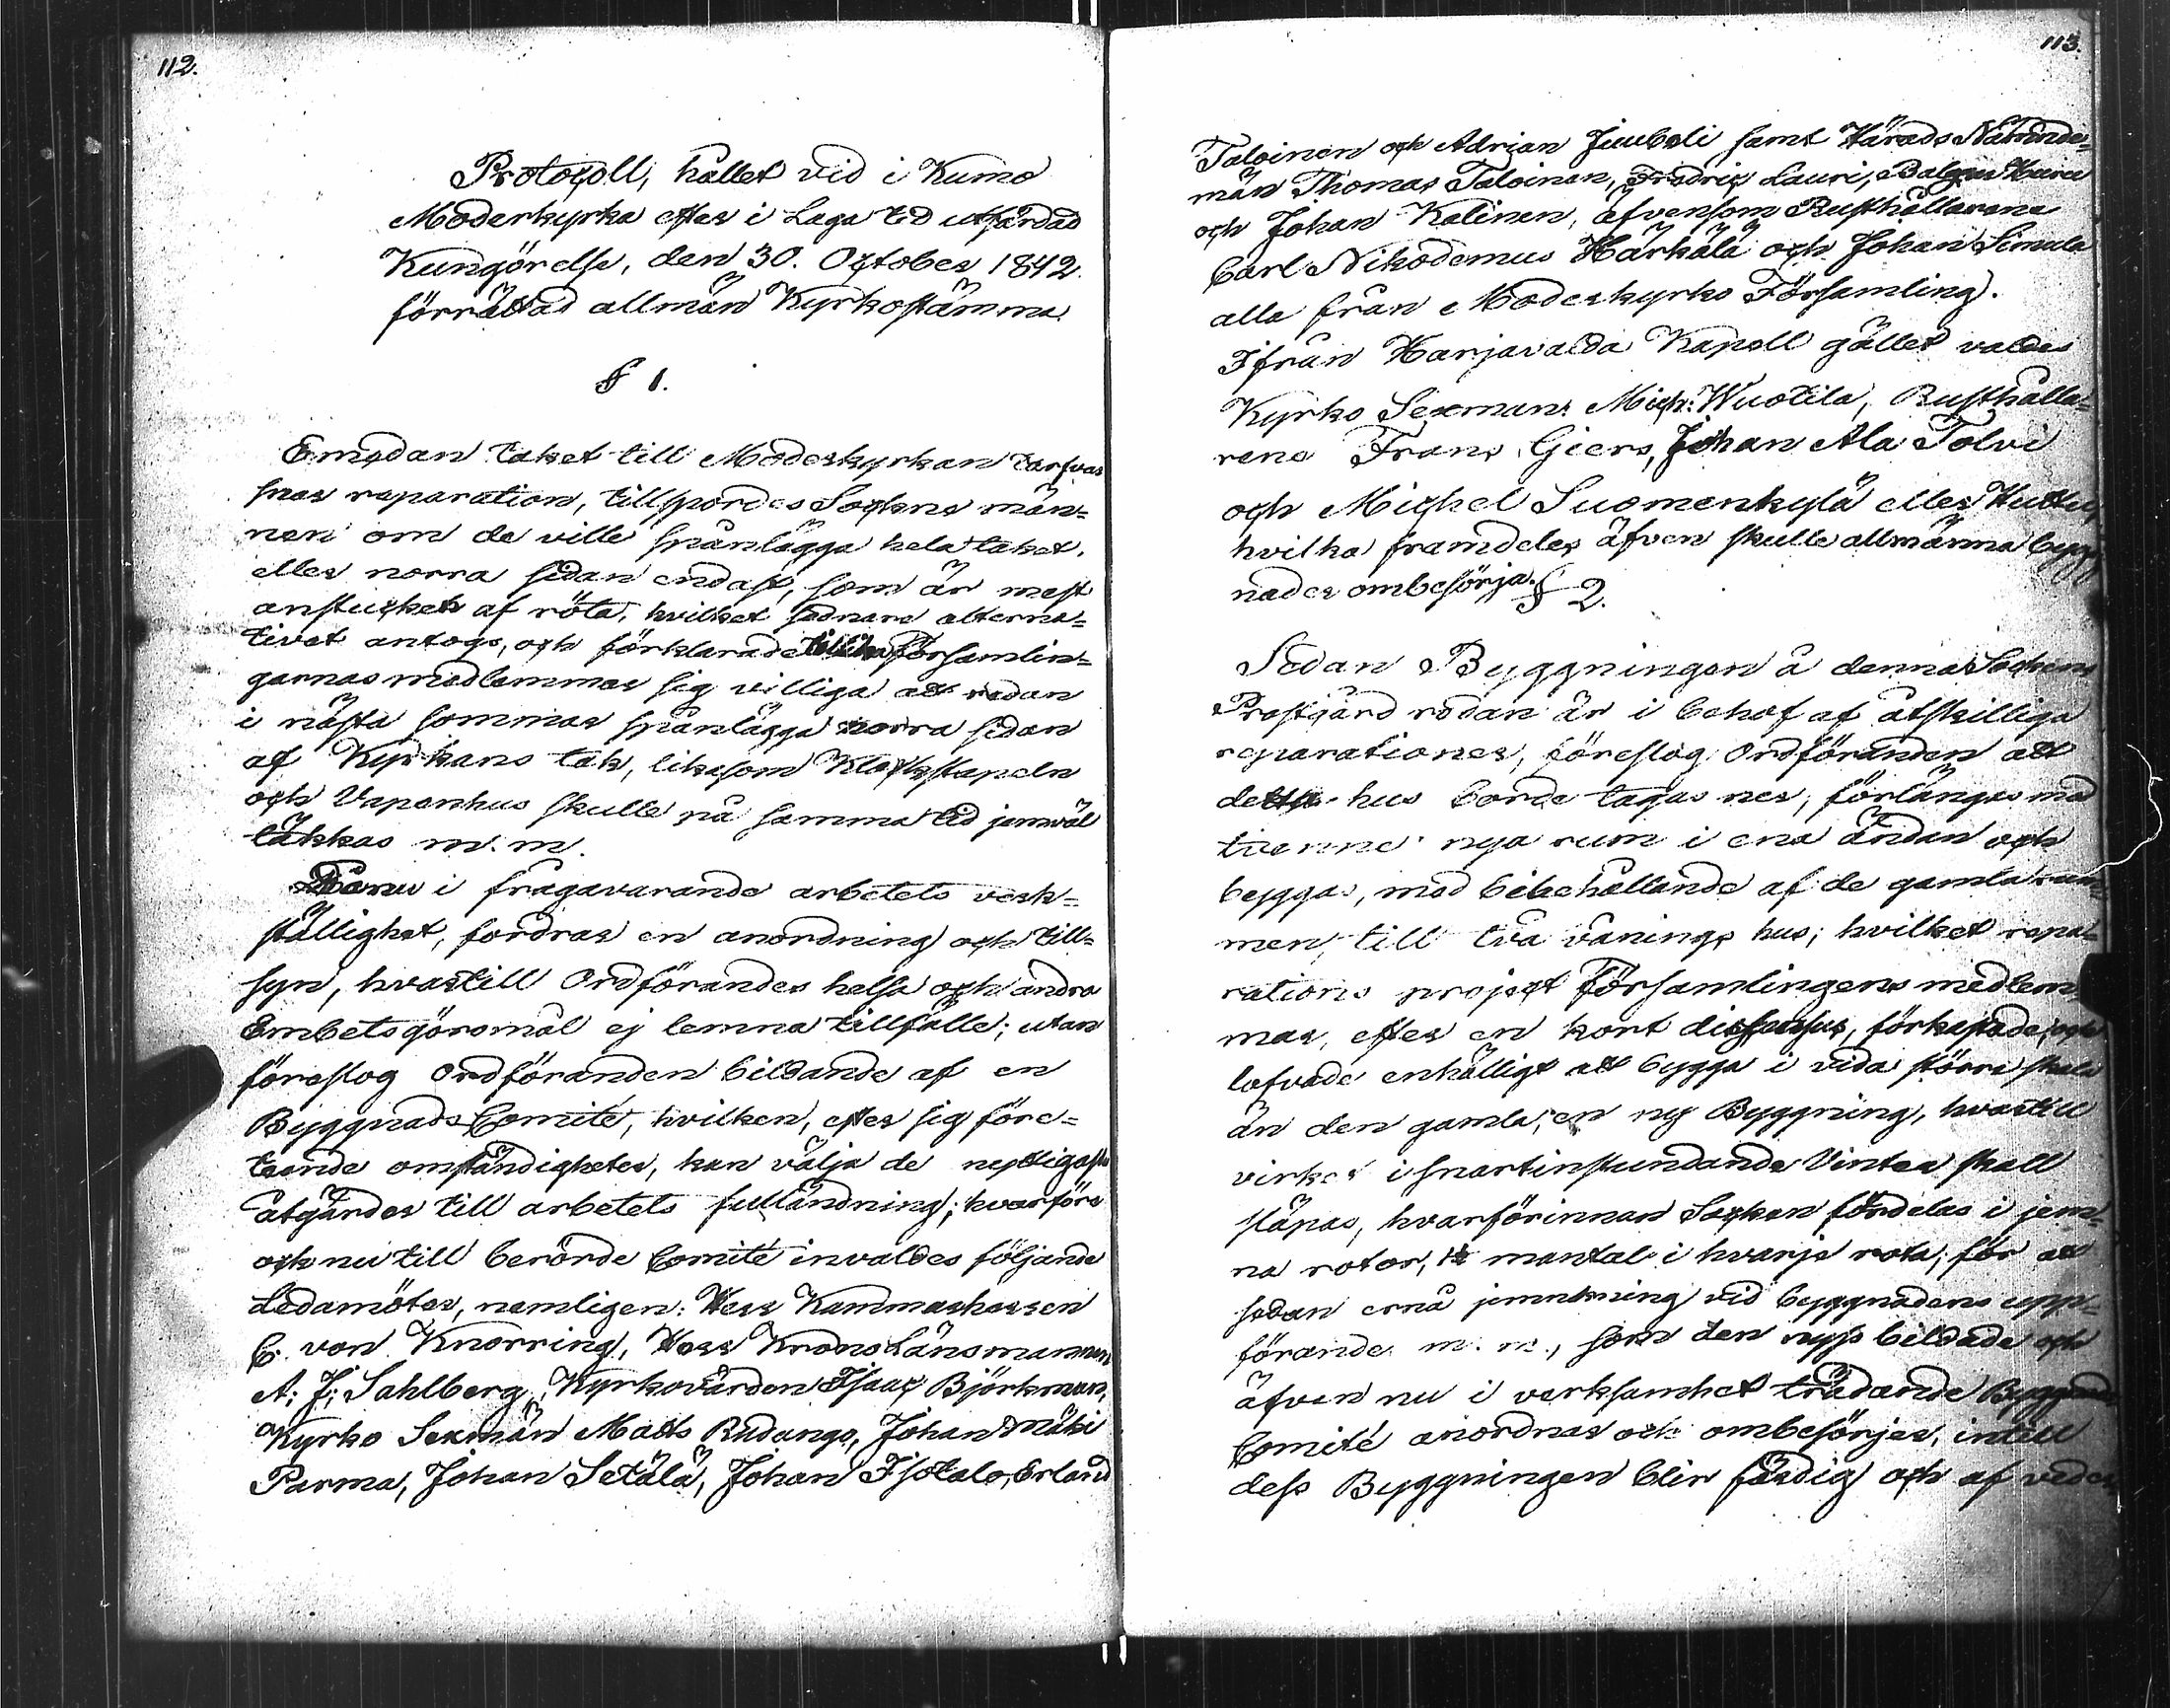 112.
Protocoll, hållet vid i Kumo
Moderkyrka efter i Laga tid utfärdad
Kungörelse, den 30. October 1842.
förrättad allmän Kyrkostämma.
§ 1.
Emedan taket till Moderkyrkan tarfvar
snar reparation, tillspordes Sockne män-
nen om de ville spånlägga hela taket,
eller norra sidan endast, som är mest
anstucket af röta, hvilket sednare alterna-
tivet antogs, och förklarade församlin-
garnas medlemmar sig villiga att redan
i nästa sommar spånlägga norra sidan
af Kyrkans tak, likasom Klockstapeln
och Vapenhus skulle på samma tid jemväl
täkkas m. m.
Då nu i frågavarande arbetets verk-
ställighet, fordras en anordning och till-
syn, hvartill Ordförandes helsa och andra
Embetsgöromål ej lemna tillfälle; utan
föreslog Ordföranden bildande af en
Byggnads Comité, hvilken, efter sig före-
teende omständigheter, kan välja de nyttigaste
åtgärder till arbetets fulländning; hvarföre
och nu till berörde Comité invaldes följande
Ledamöter, nemligen: Herr Kammarherren
C. von Knorring, Herr Krono Länsmannen
A: J: Sahlberg, Kyrkovärden Isaac Björkman,
Kyrko Sexmän Matts Rudanga, Johan Mäki
Parma, Johan Setälä, Johan Isotalo, Erland
113.
Taloinen och Adrian Juuboli samt Härads Nämnde-
män Thomas Taloinen, Fredric Lauri,
och Johan Kalinen, äfvensom Rusthållarena
Carl Nikodemus Härkälä och Johan Simula
alla från Moderkyrko Församling.
Ifrån Harjavalda Kapell gället valdes
Kyrko Sexman: Mich: Wuotila, Rusthålla-
rena Frans Giers, Johan Ala Tolvi
och Michel Suomenkylä eller
hvilka framdeles äfven skulle allmänna bygg-
nader ombesörja. § 2.
Sedan Byggningen å denna Sockens
Prostgård redan är i behof af åtskilliga
reparationer, föreslog Ordföranden att
detta hus borde tagas ner, förlängas med
tvenne nya rum i ena ändan och
byggas, med bibehållande af de gamla rum-
men, till två vånings hus; hvilket repa-
rations project Församlingens medlem-
mar, efter en kort discussus, förkastade, och
lofvade enhälligt att bygga i vida större skala
än den gamla, en ny Byggning, hvartill
virket i snartinstundande Vinter skall
släpas, hvarförinnan Socken fördelas i jem-
na rotor, mantal i hvarje rota, för att
sedan ernå jemnkning vid byggnadens upp-
förande m. m., som den nyss bildade och
äfven nu i verksamhet trädande Byggnads
Comité anordnar och ombesörjer, intill
dess Byggningen blir färdig och af veder